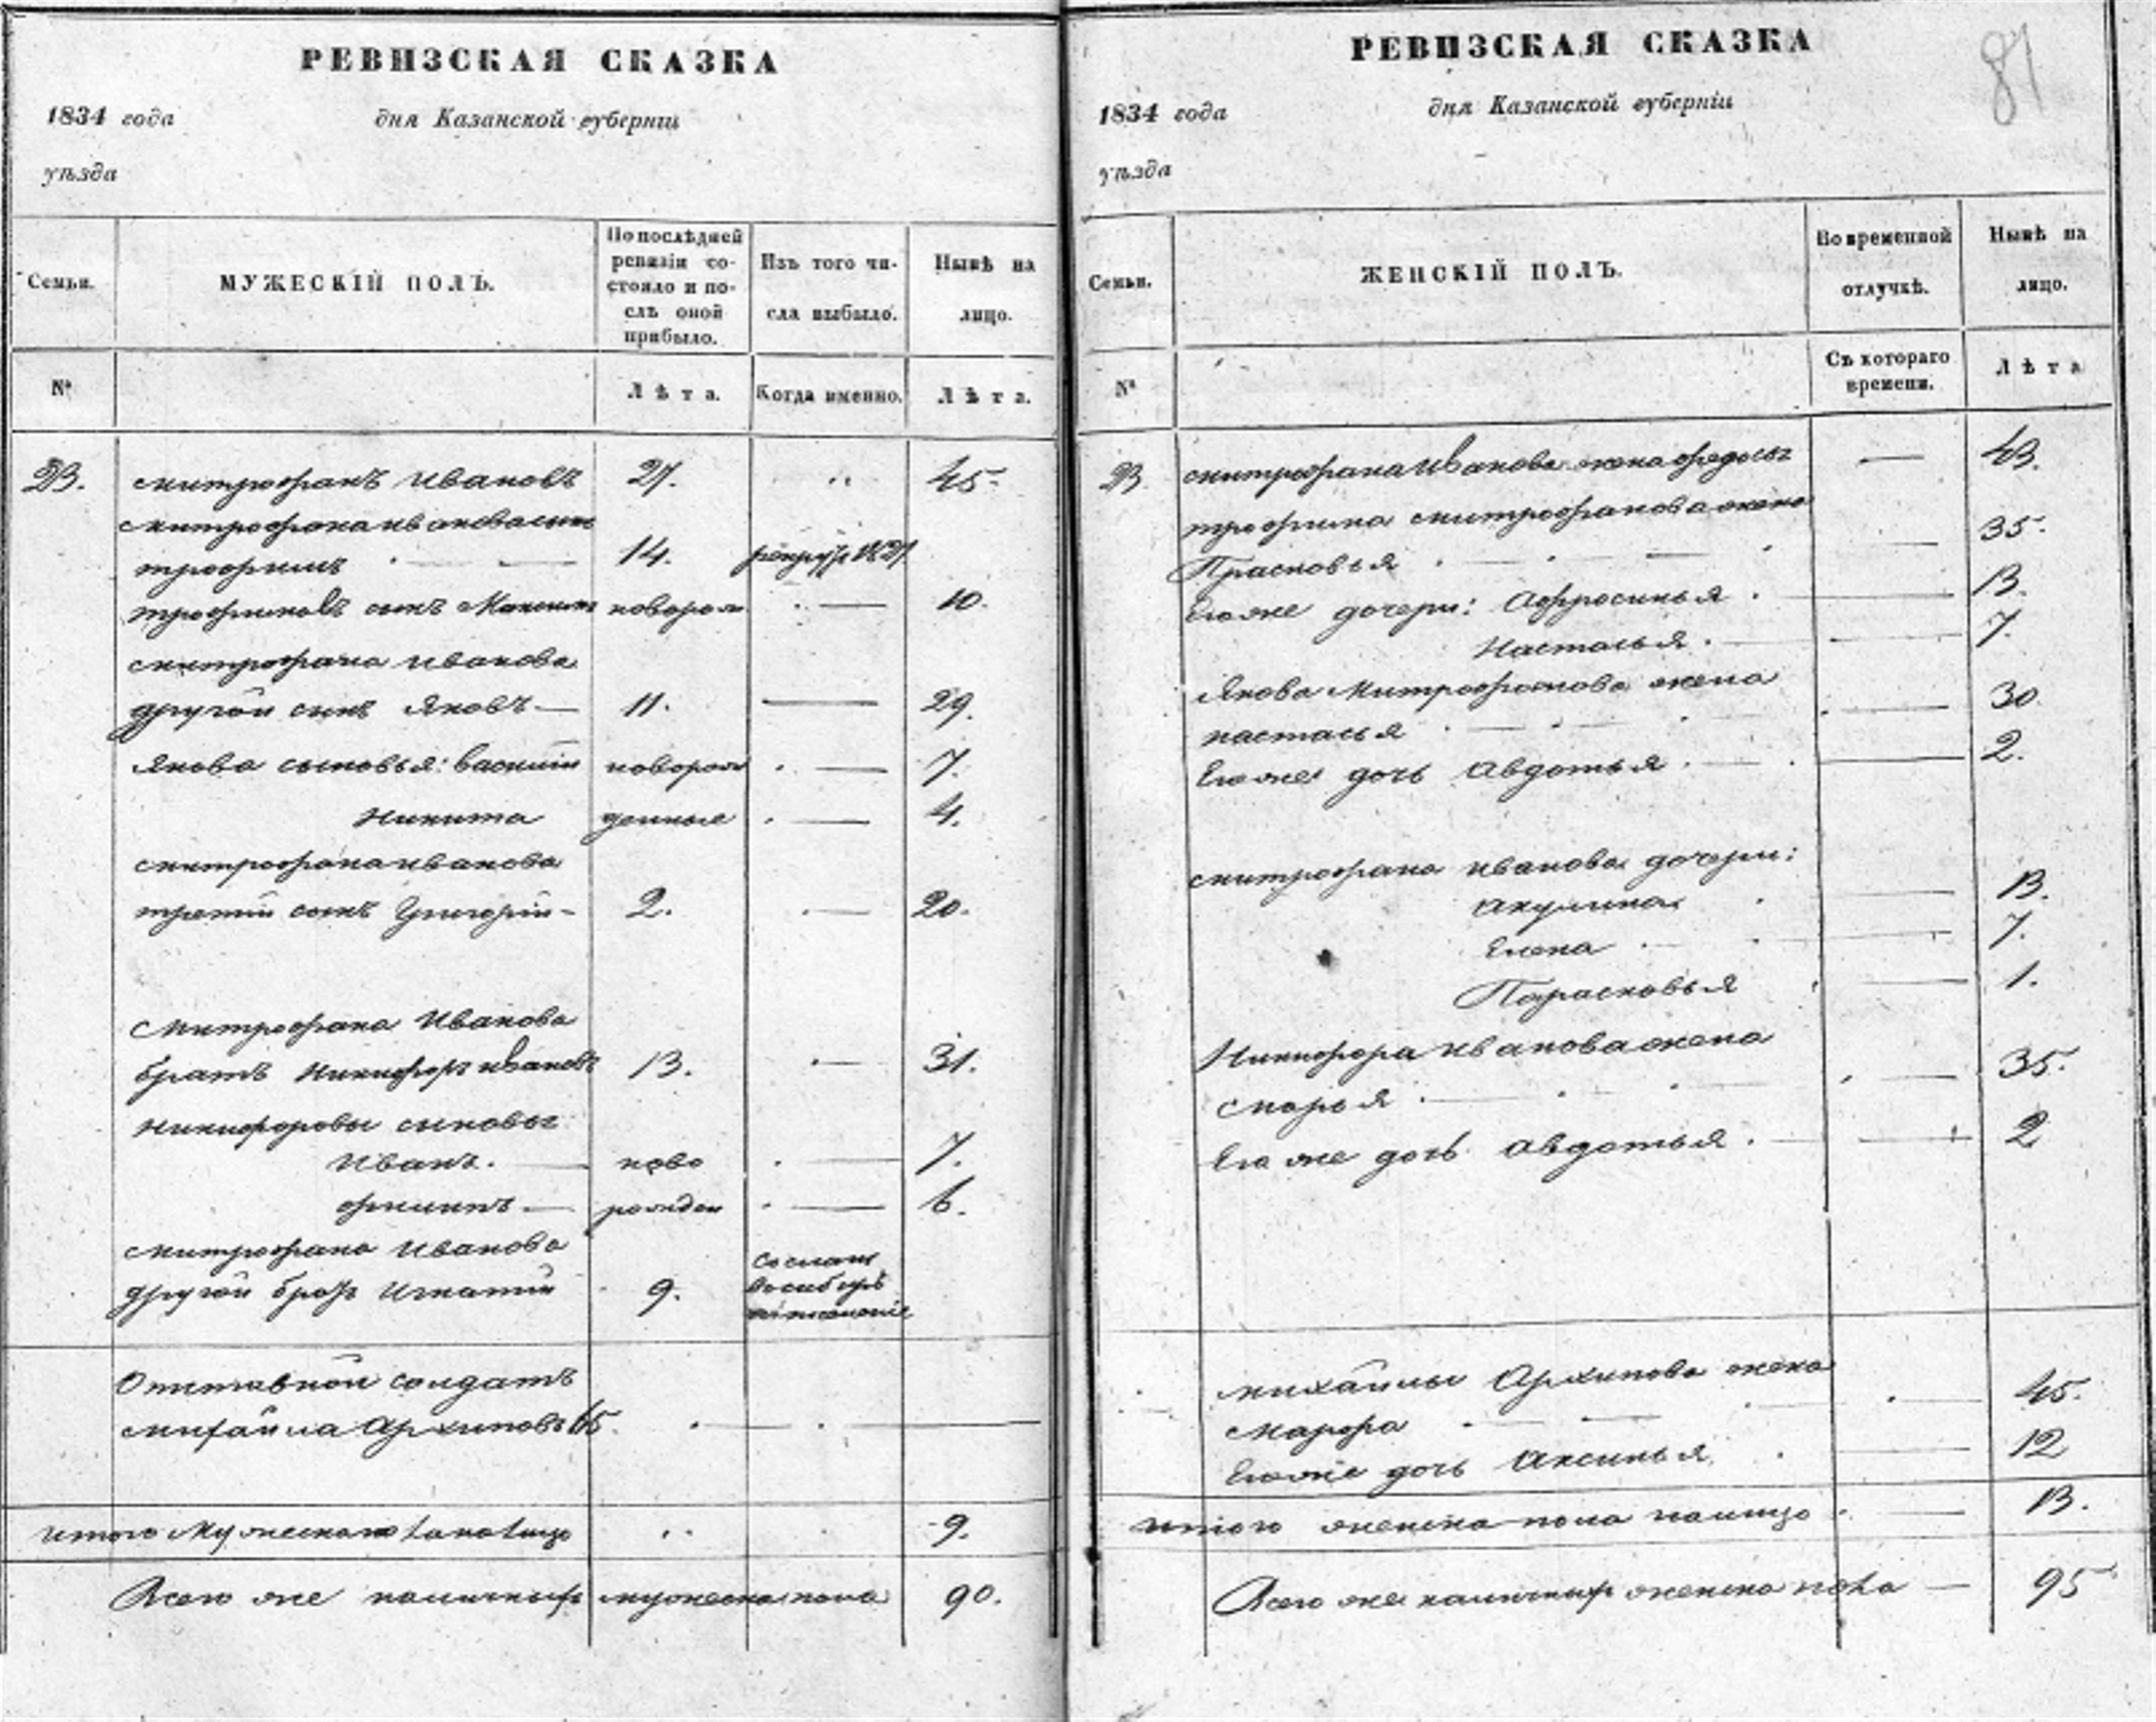 РЕВИЗСКАЯ СКАЗКА
1834 года дня Казанской губерніи
уѣзда
Семьи.
МУЖЕСКІЙ ПОЛЪ.
По послѣдней
ревизіи со-
стояло и по-
слѣ оной
прибыло.
Изъ того чи-
сла выбыло.
Нынѣ на
лицо.
№
Лѣта.
Когда именно.
Лѣта.
23. Митрофанъ Ивановъ 27. 45
Митрофана Иванова сынъ
трофимъ 14. рекрут 1827
трофимовъ сынъ Максимъ новорож 10.
Митрофана Иванова
другой сынъ Яковъ 11. 29.
Якова сыновья: Василій новорож 7.
Никита денные 4.
Митрофана Иванова
третій сынъ Григорій 2. 20.
Митрофана Иванова
братъ Никифоръ Ивановъ 13. 31.
Никифоровы сыновья
Иванъ. ново 7.
Филипъ рожден 6.
Митрофана Иванова
другой братъ Игнатій 9. сосланъ
восибирь
Отставной солдатъ
Михайла Архиповъ 65.
итого Мужеска 9.
Всего же наличныхъ мужеска пола 90.
РЕВИЗСКАЯ СКАЗКА
81
1834 года дня Казанской губерніи
уѣзда
Семьи.
ЖЕНСКІЙ ПОЛЪ.
Во временной
отлучкѣ.
Нынѣ на
лицо.
№
Съ котораго
времени.
Лѣта
23 Митрофана Иванова жена федосья 43.
трофима Митрофанова жена
Прасковья 35.
Его же дочери: Афросинья 13.
Настасья 7.
Якова Митрофанова жена
настасья 30.
Его же дочь Авдотья 2.
Митрофана Иванова дочери:
Акулина 13.
Елена 7.
Парасковья 1.
Никифора Иванова жена
Марья 35.
Его же дочь Авдотья 2
Михайлы Архипова жена
Марфа 45.
Его же дочь Аксинья 12
итого женска пола налицо 13.
Всего же наличныхъ женска пола 95